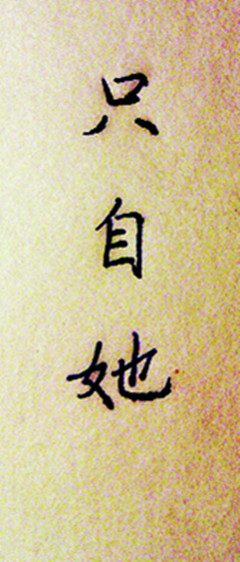 只自她